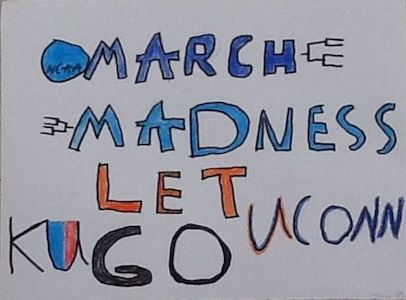 NCAA MARCH
MADNESS
LET
KU GO UCONN